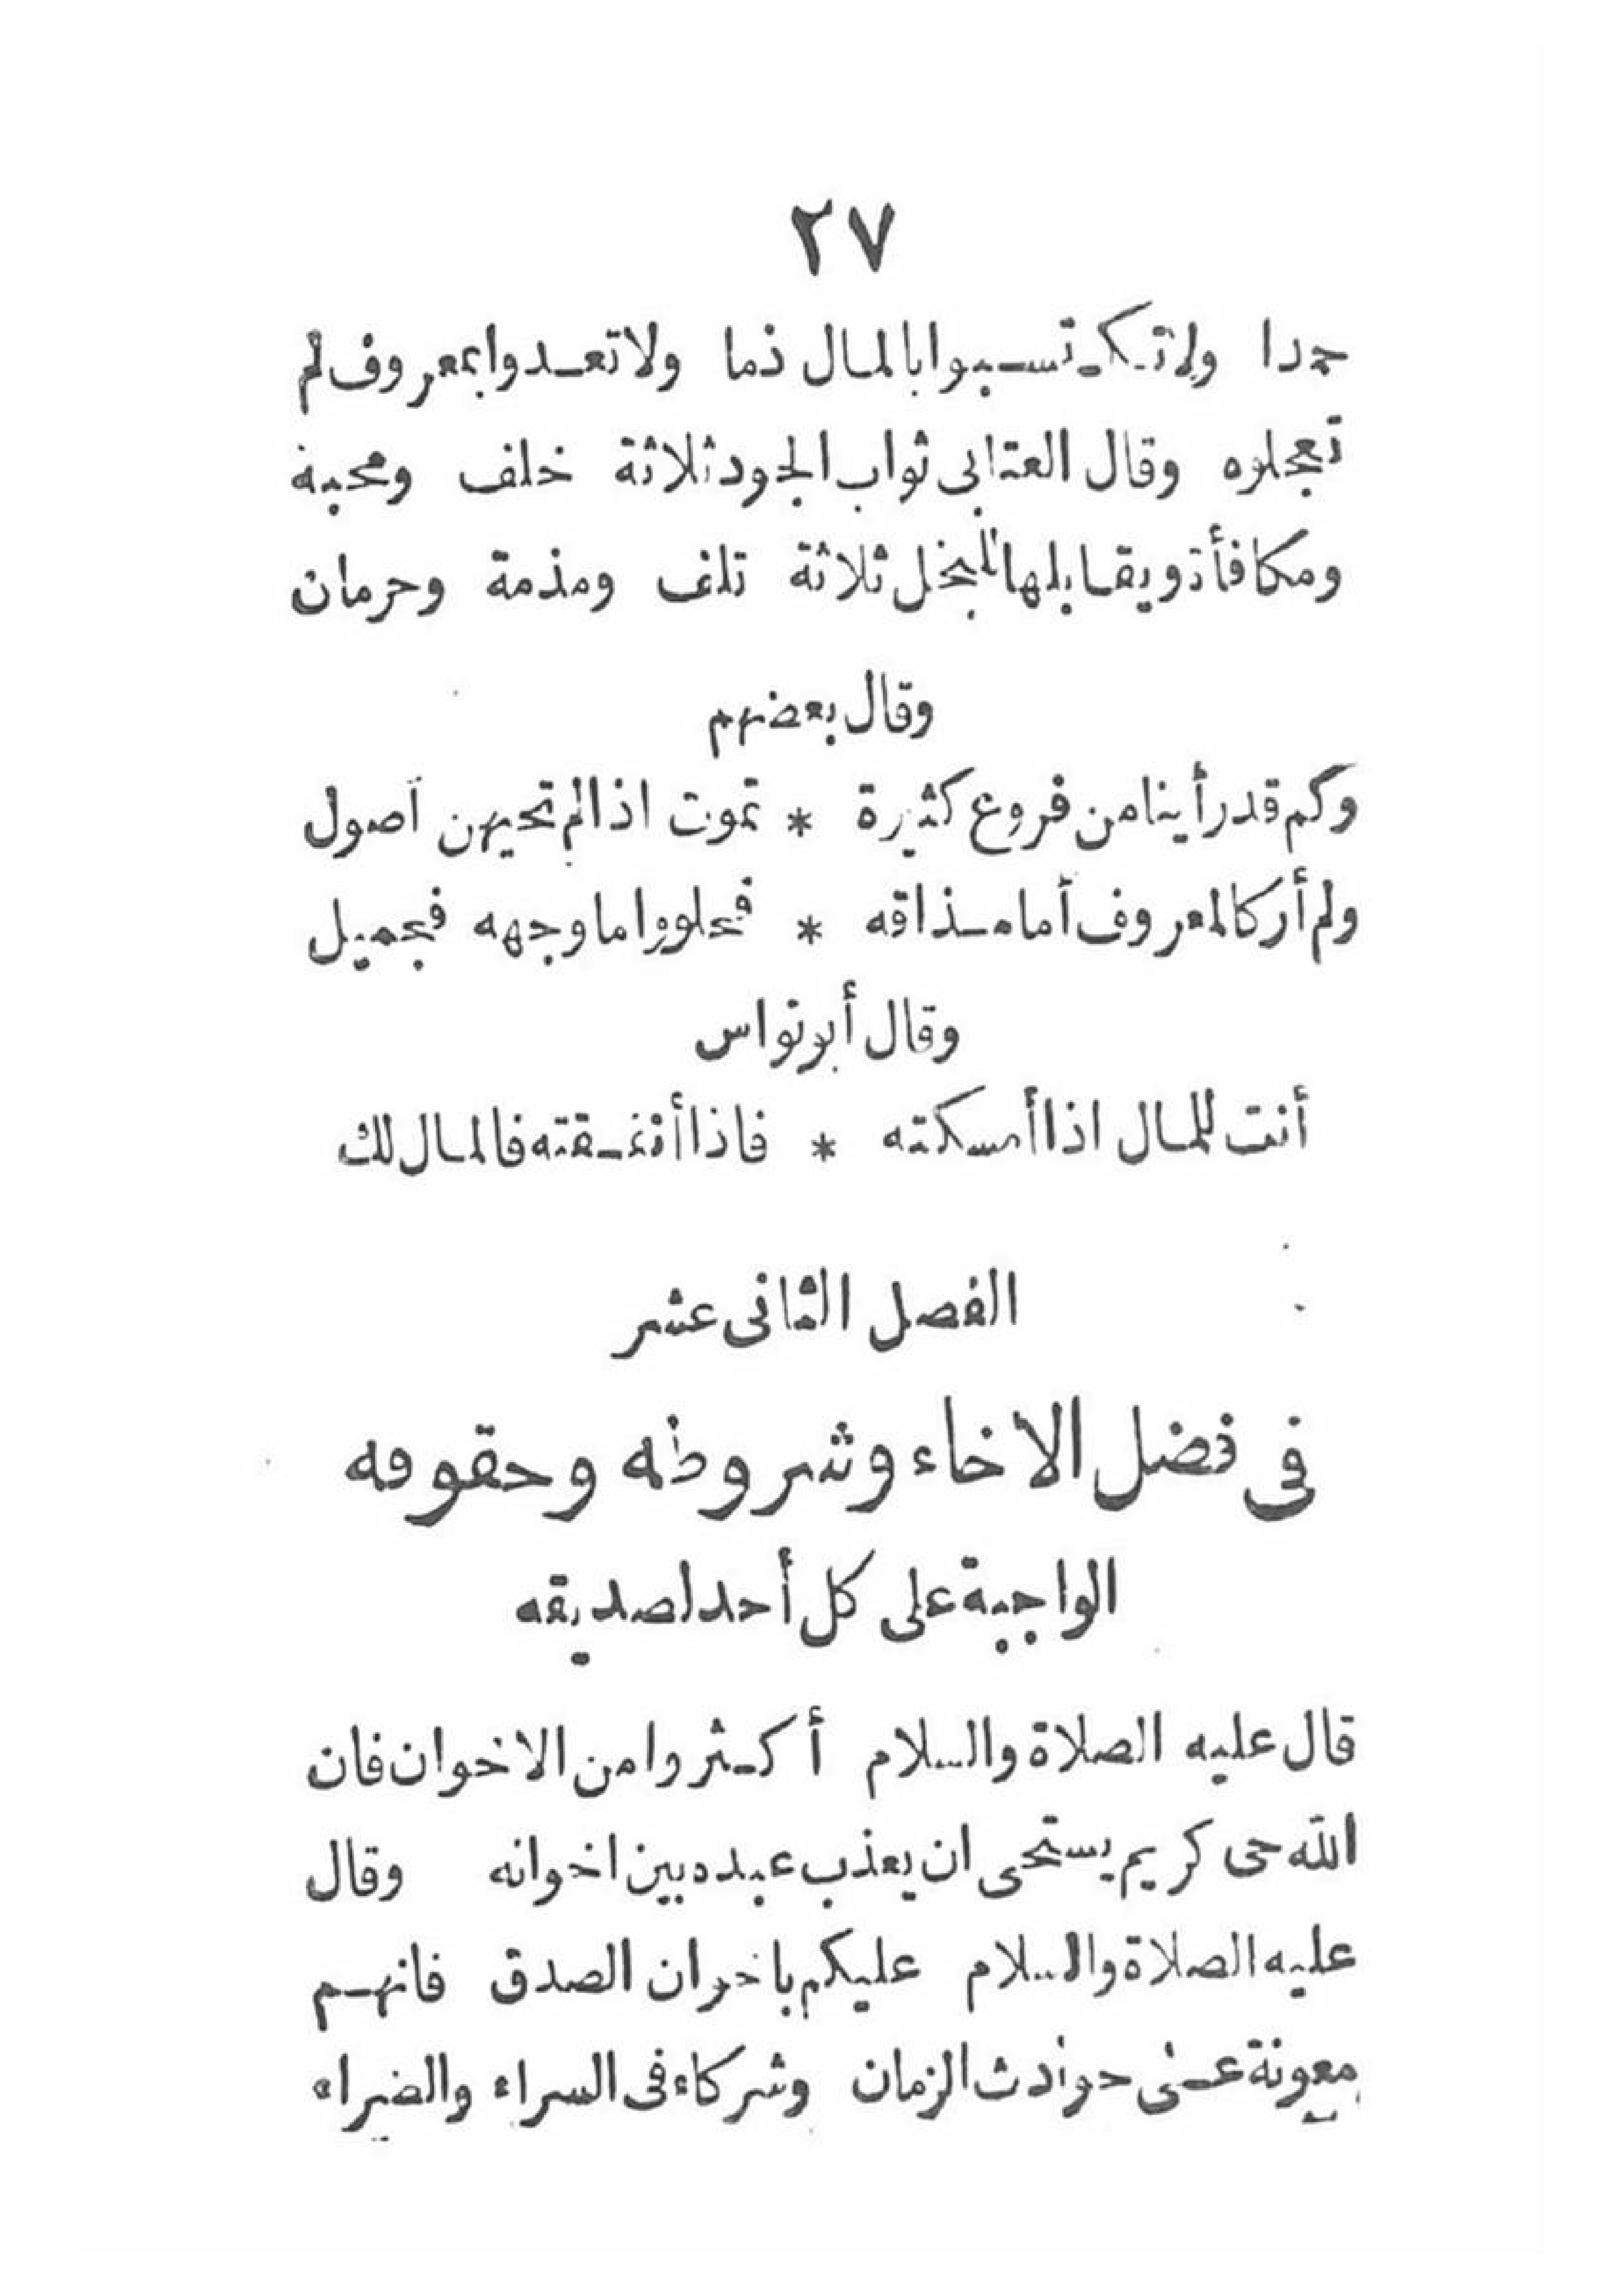 ٢٧
حمدا ولا تكتسبوا بالمال ذما ولا تعدوا بمعروف لم
تعجلوه وقال العتابى ثواب الجود ثلاثة خلف ومحبة
ومكافأة ويقابلها للبخل ثلاثة تلف ومذمة وحرمان
وقال بعضهم
وكم قد رأينا من فروع كثيرة * تموت اذا لم تحيهن أصول
ولم أر كالمعروف أما مذاقه * فحلو واما وجهه فجميل
وقال أبو نواس
أنت للمال اذا أمسكته * فاذا أنفقته فالمال لك
الفصل الثانى عشر
فى فضل الاخاء وشروطه وحقوقه
الواجبة على كل أحد لصديقه
قال عليه الصلاة والسلام أكثروا من الاخوان فان
الله حى كريم يستحى ان يعذب عبده بين اخوانه وقال
عليه الصلاة والسلام عليكم باخوان الصدق فانهم
معونة على حوادث الزمان وشركاء فى السراء والضراء